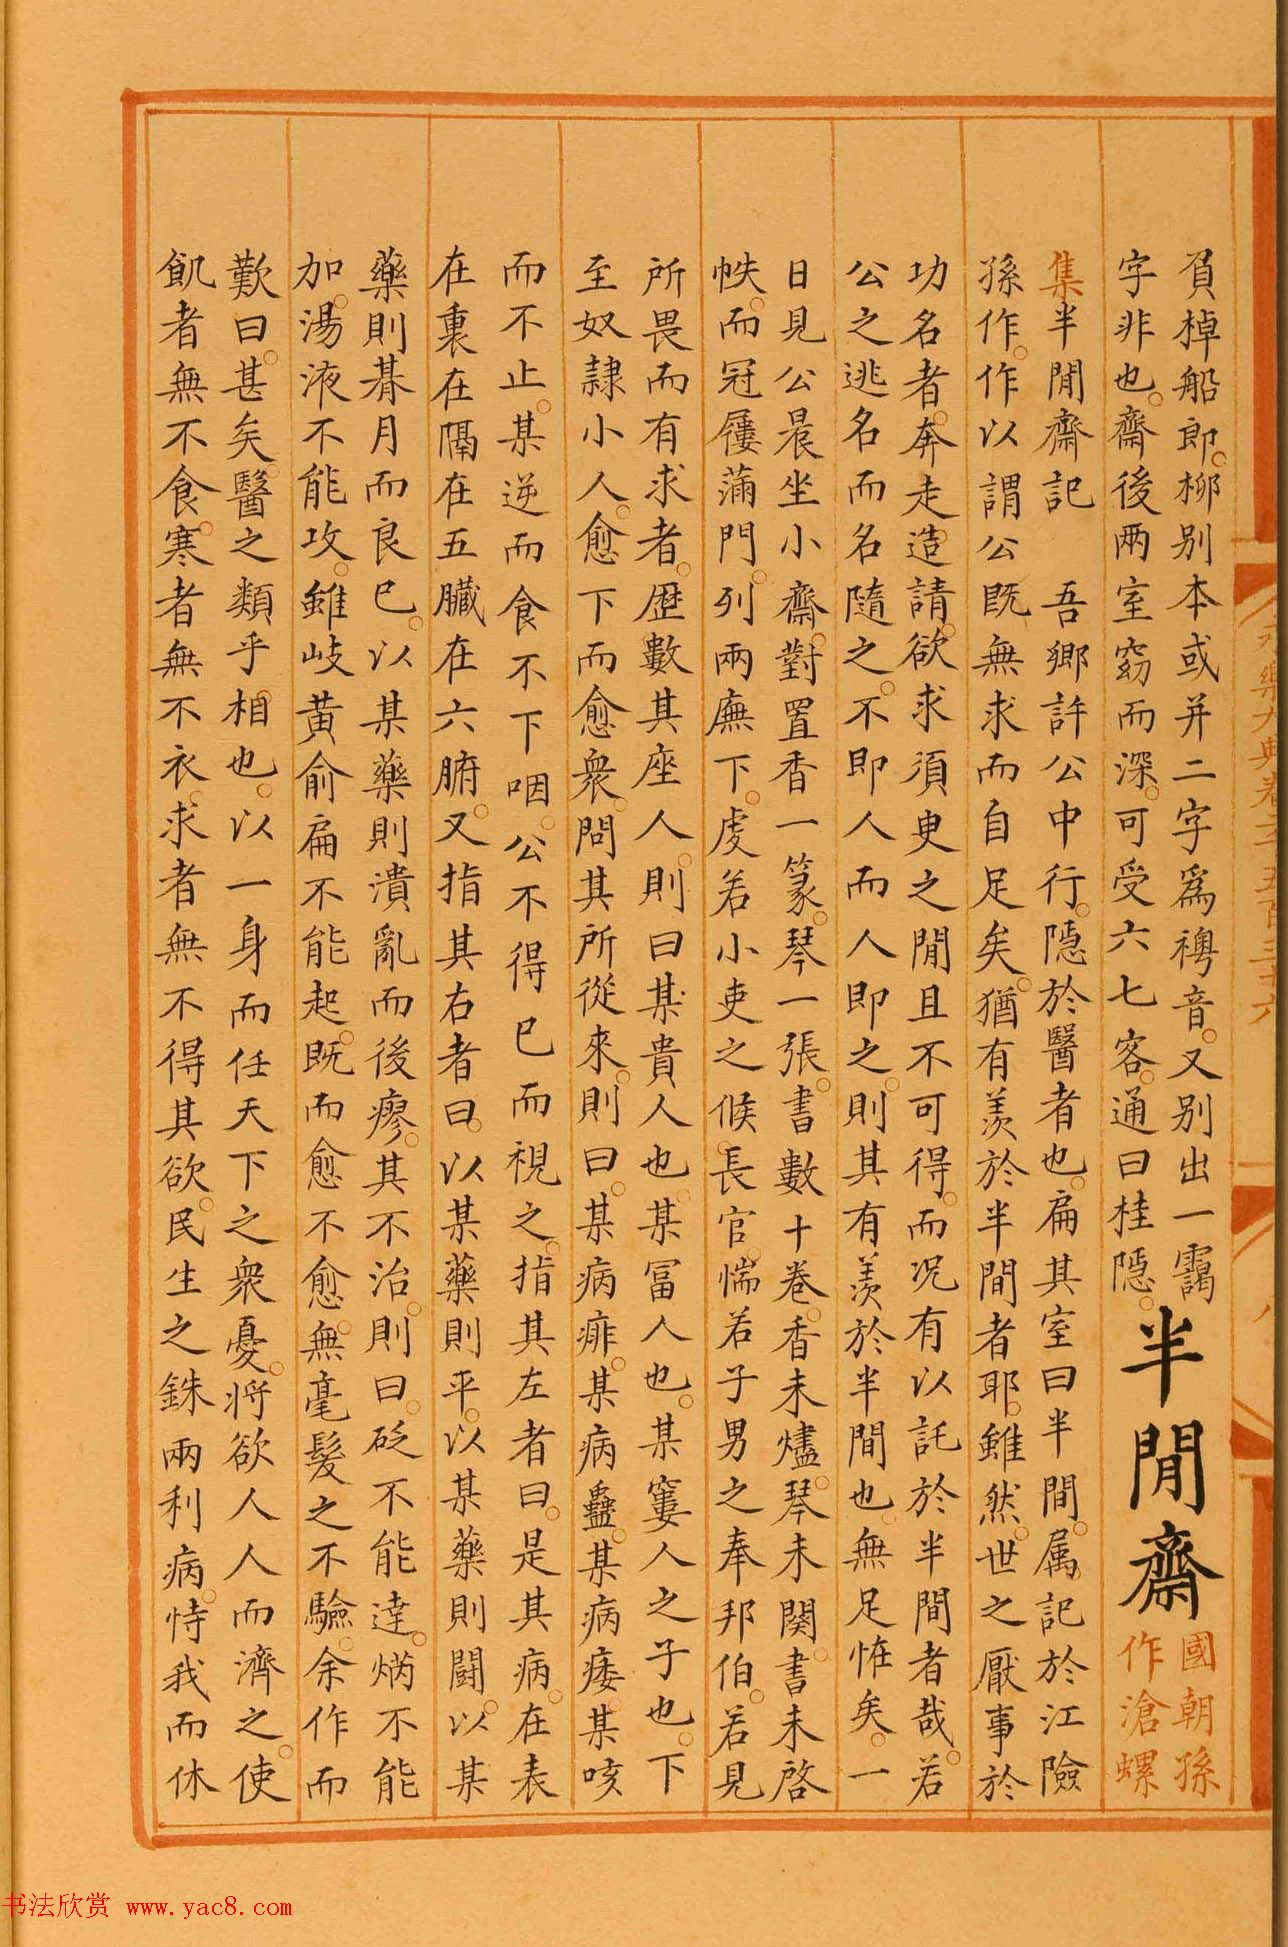 負棹船郎。柳别本或并二字爲禣音。又别出一靄
字非也。齋後兩室窈而深。可受六七客。通曰桂隱。
半閒齋
國朝孫
作滄螺
集半閒齋記 吾鄉許公中行。隱於醫者也。扁其室曰半間。属記於江險
孫作。作以謂公既無求而自足矣。猶有羡於半間者耶。雖然。世之厭事於
功名者。奔走造請。欲求須臾之閒且不可得。而况有以託於半間者哉。若
公之逃名而名隨之。不即人而人即之。則其有羡於半間也。無足恠矣。一
日見公晨坐小齋。對置香一篆。琴一張。書數十卷。香未燼。琴未闋。書未啓
帙。而冠屨滿門。列兩廡下。虔若小吏之候長官。惴若子男之奉邦伯。若見
所畏而有求者。歷數其座人。則曰某貴人也。某冨人也。某窶人之子也。下
至奴隷小人。愈下而愈衆。問其所從來。則曰。某病痱。某病蠱。某病痿。某咳
而不止。某逆而食不下咽。公不得已而視之。指其左者曰。是其病。在表
在裏在隔在五臟在六腑。又指其右者曰。以某藥則平。以某藥則鬭。以某
藥則朞月而良已。以某藥則潰亂而後瘳。其不治。則曰。砭不能達。焫不能
加。湯液不能攻。雖岐黃俞扁不能起。既而愈不愈。無毫髮之不驗。余作而
歎曰。甚矣。醫之類乎相也。以一身而任天下之衆憂。将欲人人而濟之。使
飢者無不食。寒者無不衣。求者無不得其欲。民生之銖兩利病。恃我而休
永樂大典卷二千五百三十六
八
书法欣赏 www.yac8.com